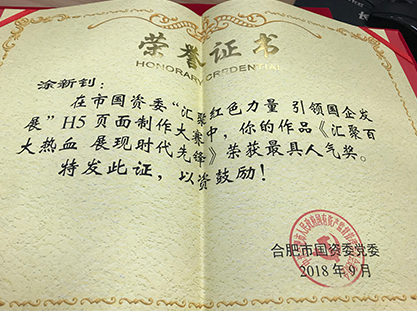 荣誉证书
HONORARY CREDENTIAL
涂新钊：
在市国资委“汇聚红色力量 引领国企发
展”H5页面制作大赛中，你的作品《汇聚百
大热血 展现时代先锋》荣获最具人气奖。
特发此证，以资鼓励！
合肥市国资委党委
2018年9月